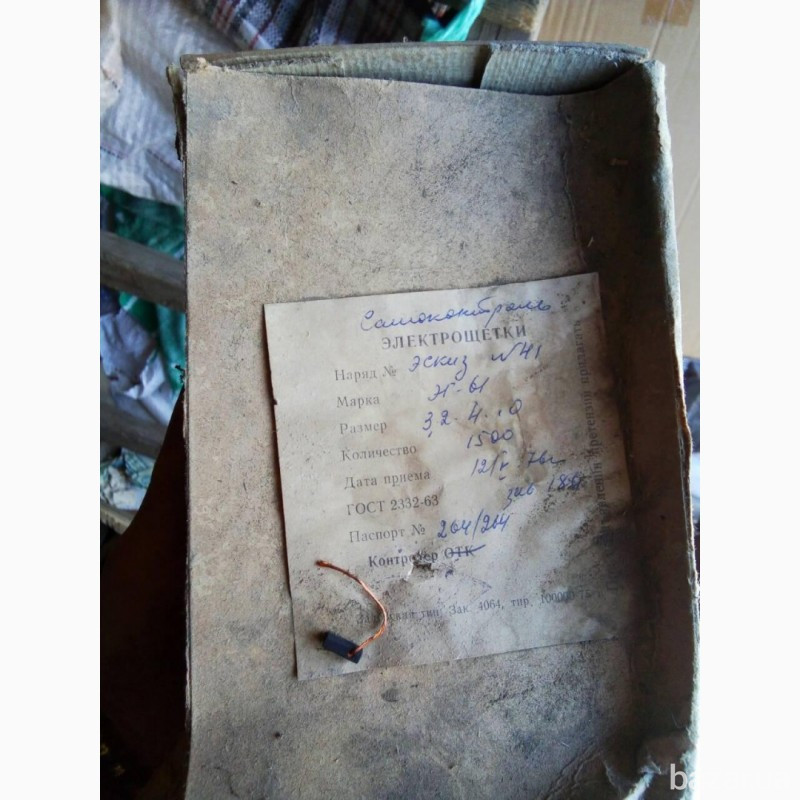 Самоконтроль
ЭЛЕКТРОЩЕТКИ
Наряд № Эскиз №41
Марка ЭГ-61
Размер 3,2-4-10
Количество 1500
Дата приема 12/V-76г.
ГОСТ 2332-63
Паспорт № 264/264
Контролер ОТК
тип. Зак. 4064, тир. 100000
претензии прилагать